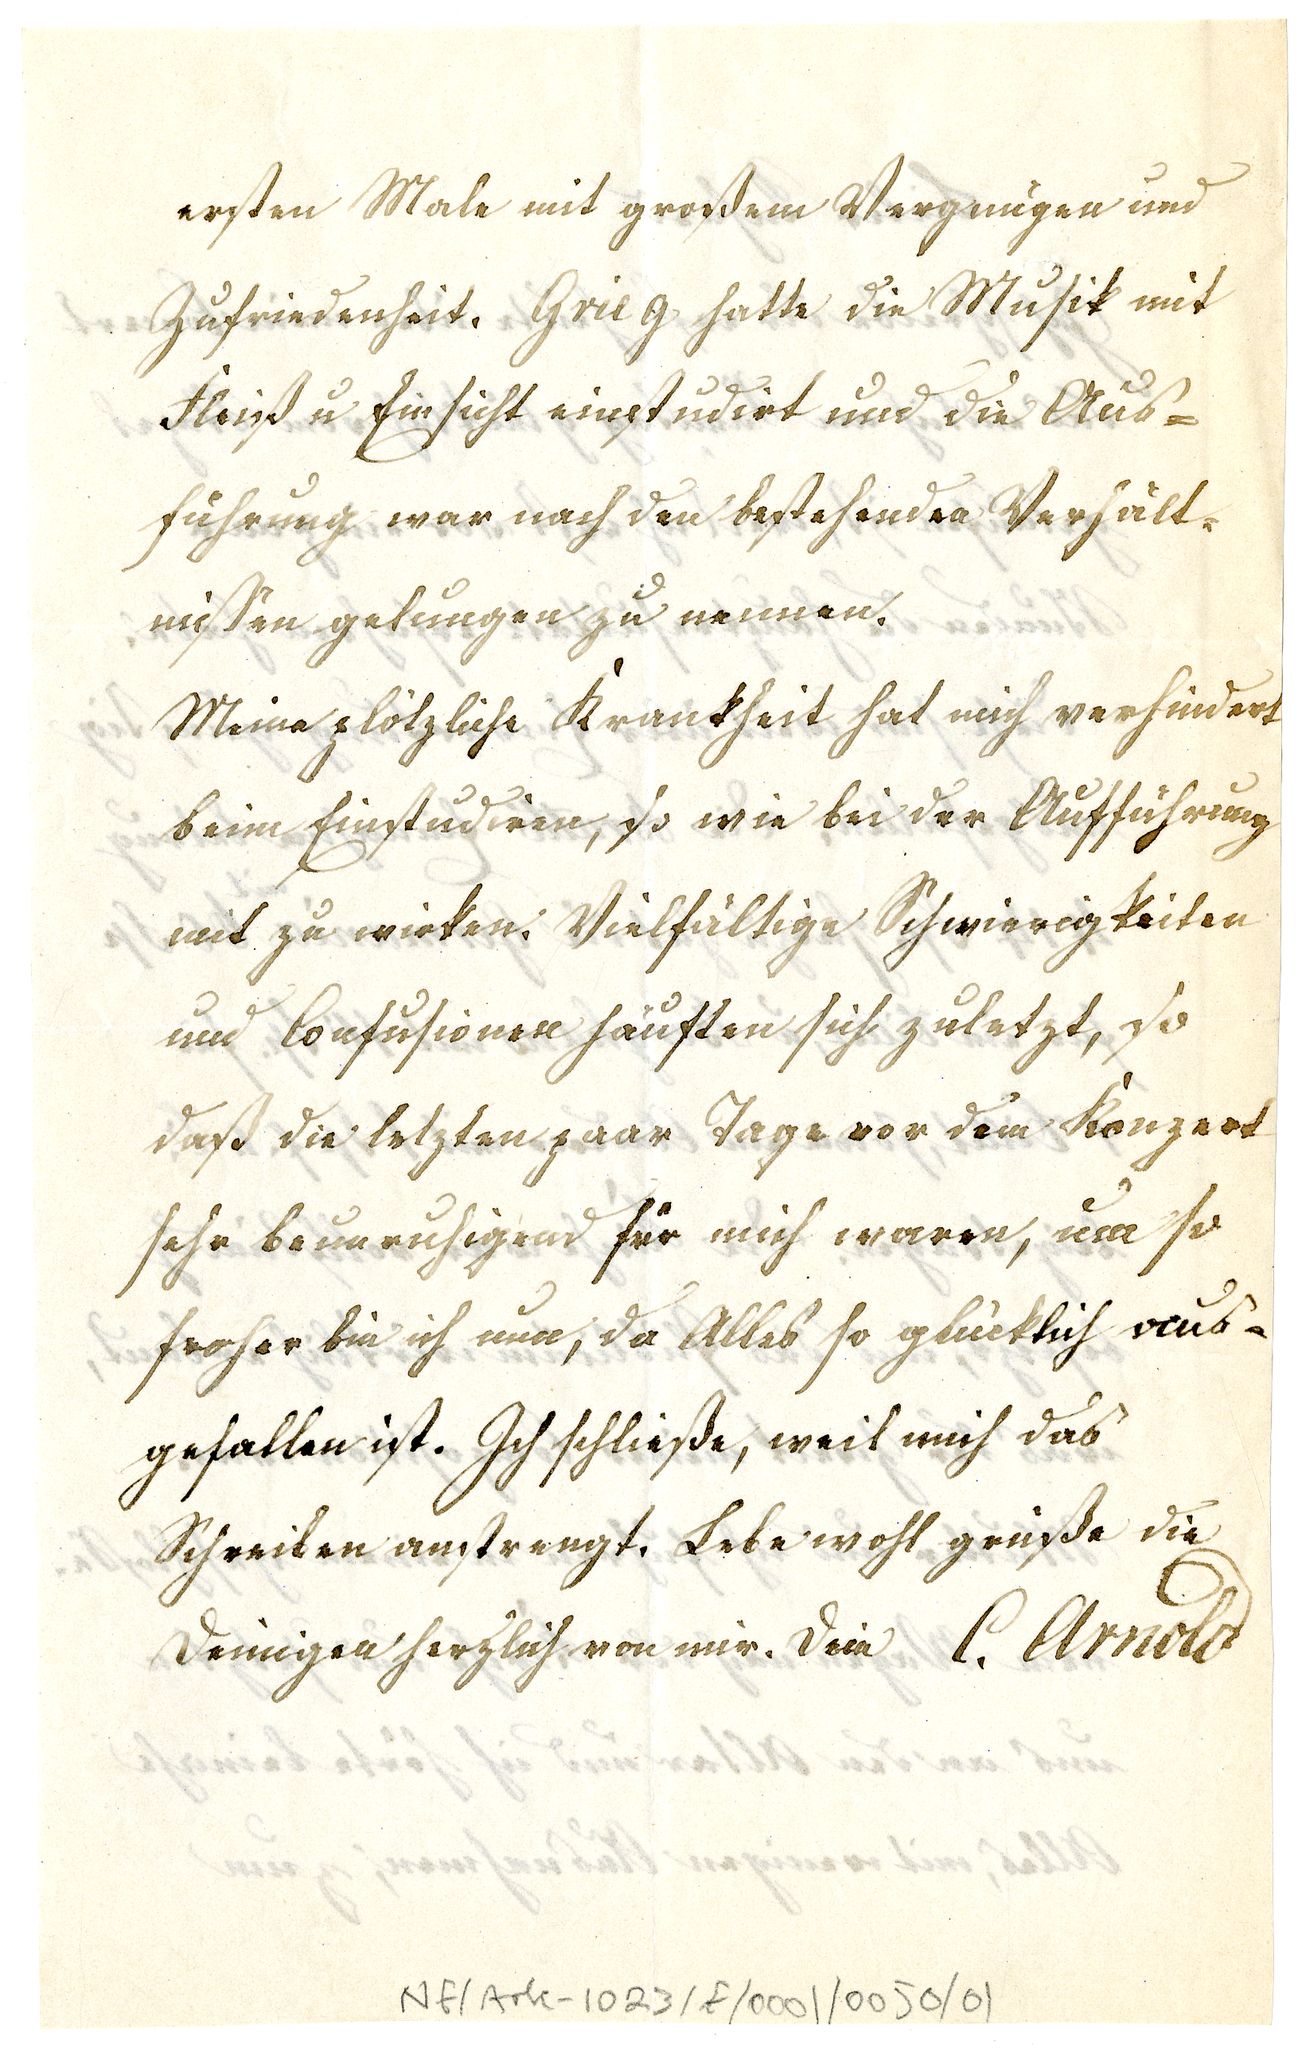 ersten Male mit großem Vergnügen und
Zufriedenheit. Grieg hatte die Musik mit
Fleiß u Einsicht einstudirt und die Aus=
führung war nach den bestehenden Verhält=
nissen gelungen zu nennen.
Meine plötzliche Krankheit hat mich verhindert
beim Einstudiren, so wie bei der Aufführung
mit zu wirken. Vielfältige Schwierigkeiten
und Confusionen häuften sich zuletzt, so
daß die letzten paar Tage vor dem Konzert
sehr beunruhigend für mich waren, um so
froher bin ich nun, da Alles so glücklich aus=
gefallen ist. Ich schließe, weil mich das
Schreiben anstrengt. Lebe wohl grüße die
Deinigen herzlich von mir. Dein C. Arnold
NF/Ark-1023/F/0001/0050/01